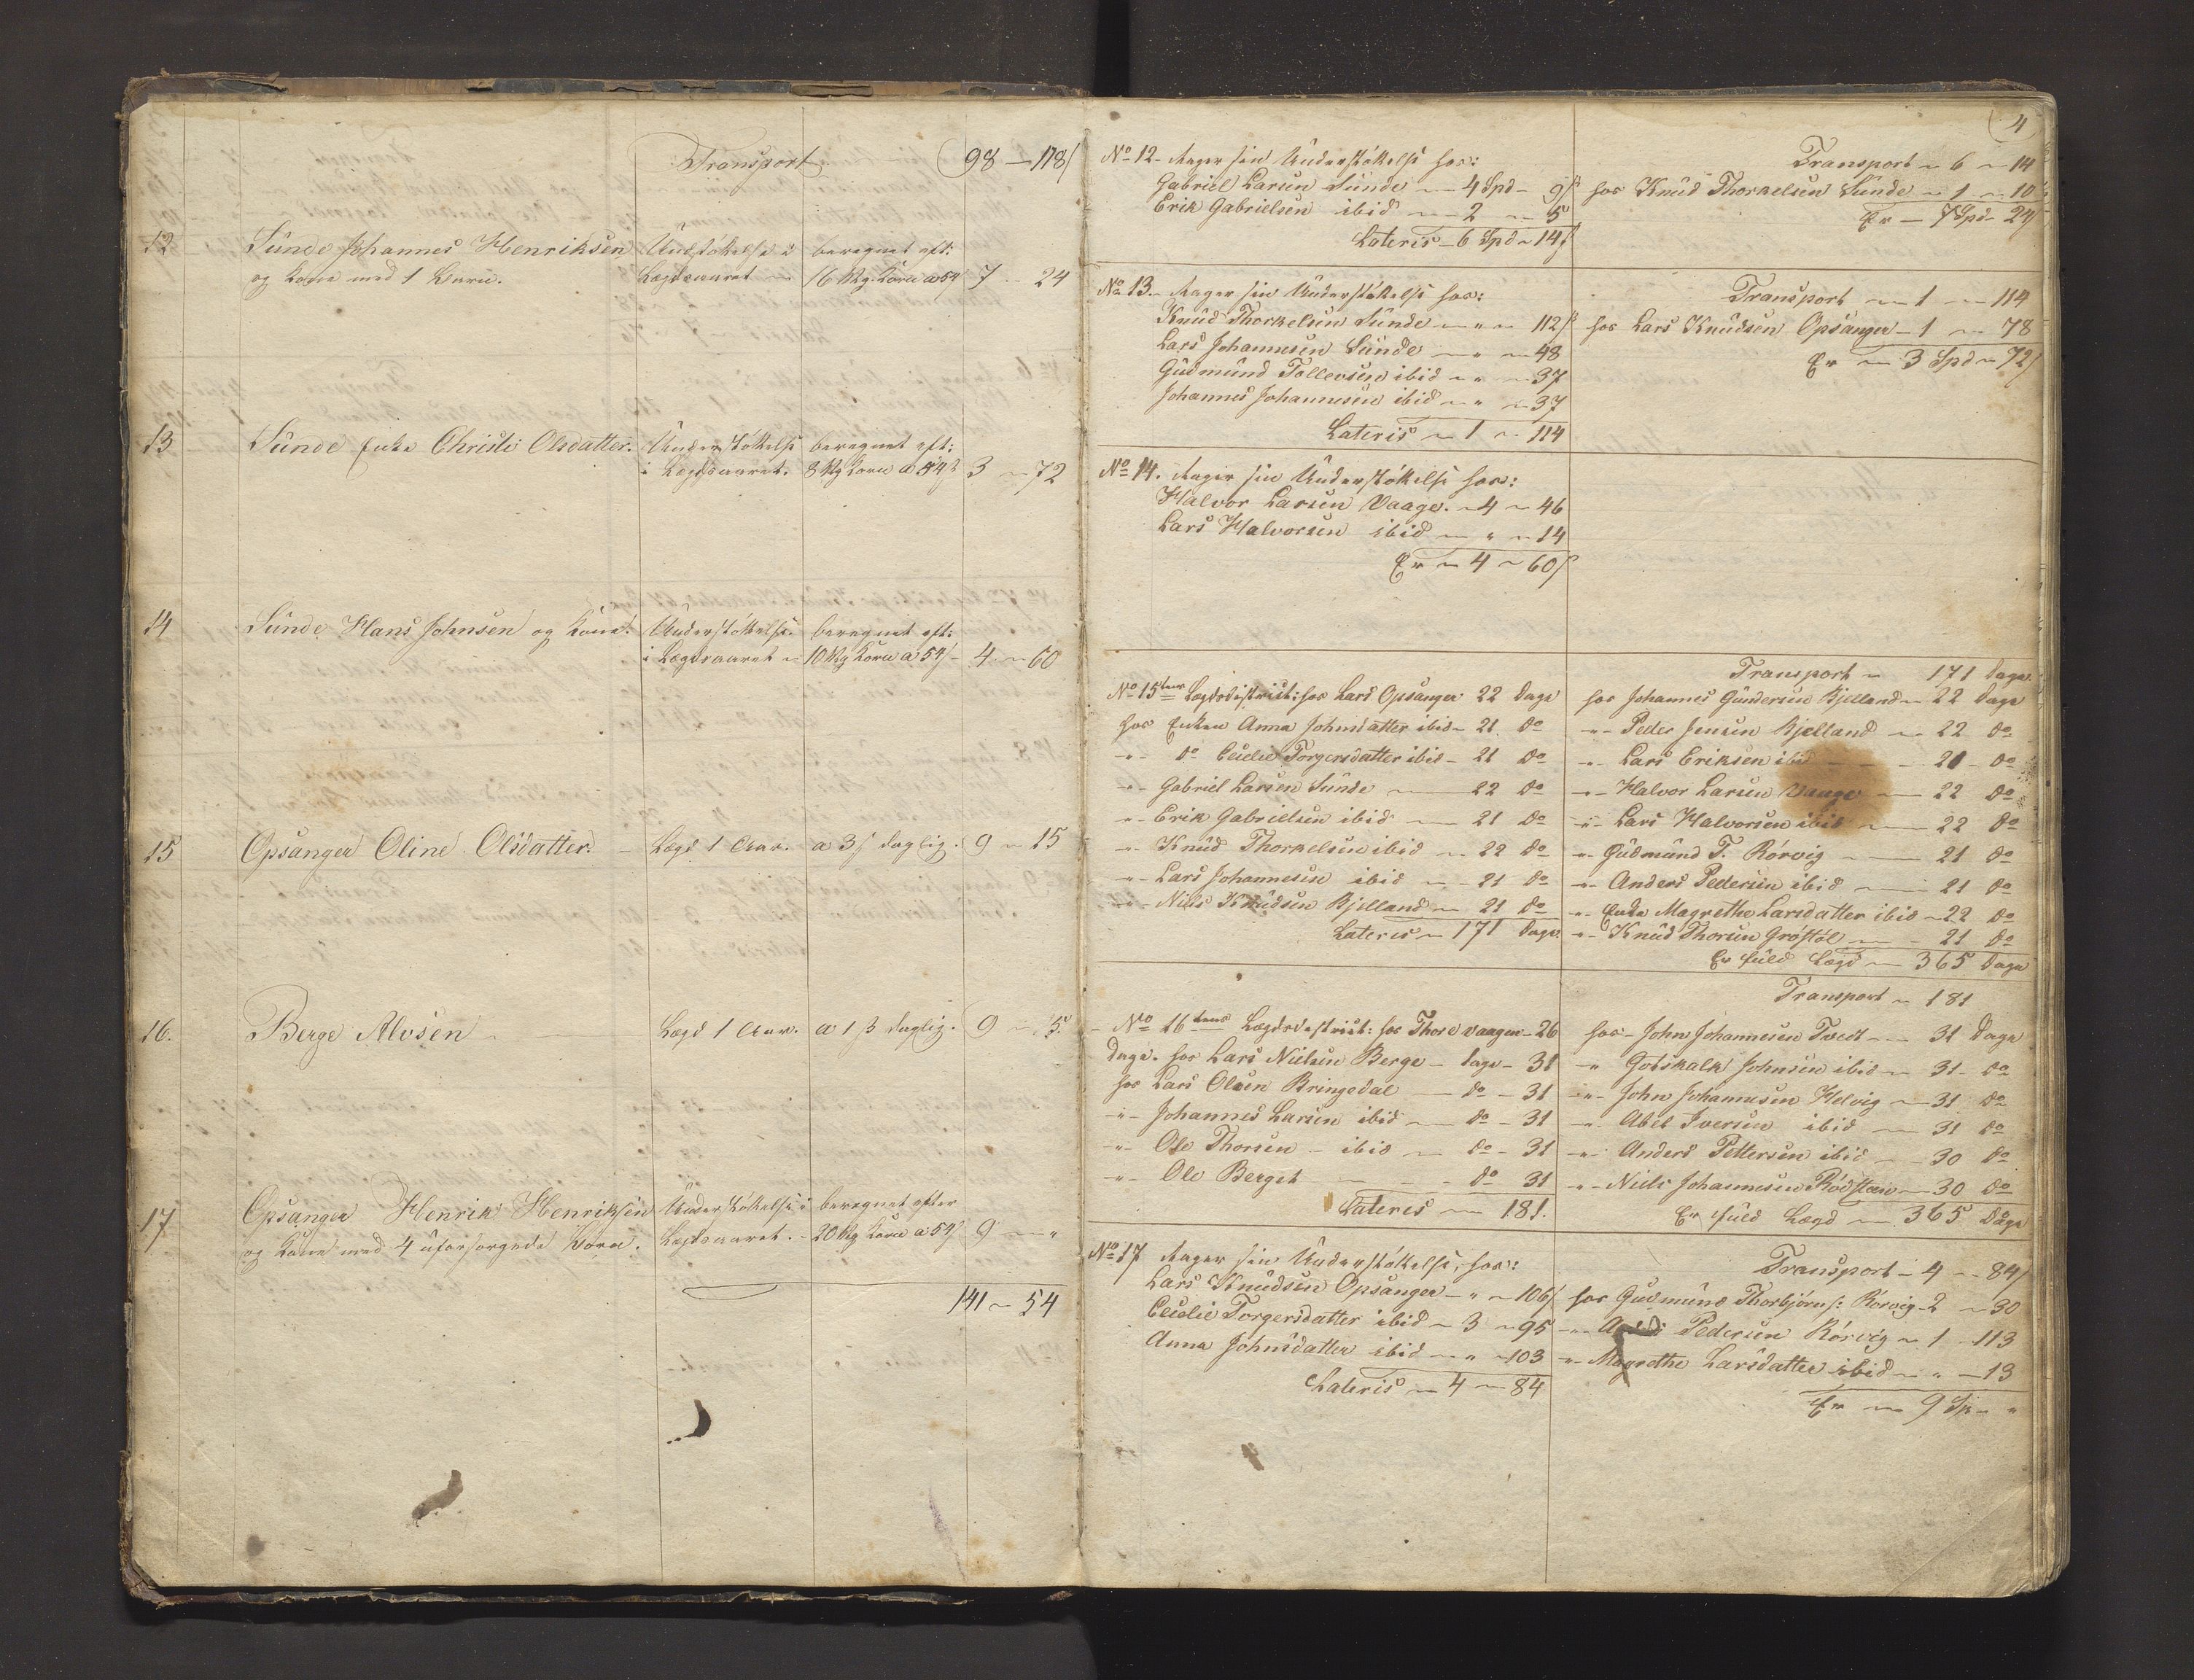 Transport 98 - 118/
12 Sunde Johannes Henriksen Understøttelse i beregnet eft:
og Kone med 1 Barn. Lægdsaaret 16 Vog Korn a 54 7 - 24
13 Sunde Enke Christi Olsdatter. Understøttelse beregnet eft:
i Lægdsaaret. 8 Vog Korn a 54 3 - 72
14 Sunde Hans Johnsen og Kone. Understøttelse beregnet eft:
i Lægdsaaret 10 Vog Korn a 54/ 4 - 60
15 Opsanger Oline Olsdatter. Lægd 1 Aar. a 3/ daglig. 9 - 15
16. Berge Alvsen Lægd 1 Aar. a 1 3 daglig. 9 - 15.
17 Opsanger Henrik Henriksen Understøttelse i beregnet efter
og Kone med 4 uforsørgede Børn. Lægdsaaret. 20 Vog Korn a 54/ 9 - "
141 - 54
4
No 12 - Tager sin Understøttelse hos:
Gabriel Larsen Sunde - 4 Spd - 9/
Erik Gabrielsen ibid - 2 - 5
Lateris - 6 Spd - 14/
Transport - 6 - 14
hos Knud Thorkelsen Sunde - 1 - 10
Er - 7 Spd - 24
No 13. - Tager sin Understøttelse hos:
Knud Thorkelsen Sunde - " - 112/
Lars Johannesen Sunde - " - 48
Gudmund Tollevsen ibid - " - 37
Johannes Johannesen ibid - " - 37
Lateris - 1 - 114
Transport - 1 - 114
hos Lars Knudsen Opsanger - 1 - 78
Er - 3 Spd - 72/
No 14. Tager sin Understøttelse hos:
Halvor Larsen Vaage. - 4 - 46
Lars Halvorsen ibid - " - 14
Er - 4 - 60/
No 15tens Lægdsdistrict: hos Lars Opsanger 22 Dage
hos Enken Anna Johnsdatter ibid - 21 do
- " - do Cecilie Torgersdatter ibid - 21 do
- " - Gabriel Larsen Sunde - 22 do
- " - Erik Gabrielsen ibid - 21 do
- " - Knud Thorkelsen ibid - 22 do
- " - Lars Johannesen ibid - 21 do
- " - Niels Knudsen Kjelland - 21 do
Lateris - 171 Dage
Transport - 171 Dage
hos Johannes Gundersen Kjelland - 22 Dage
- " - Peder Jensen Kjelland - 22 do
- " - Lars Eriksen ibid - 20 - do
- " - Halvor Larsen Vaage - 22 do
- " - Lars Halvorsen ibid - 22 do
- " - Gudmund T. Rørvig - 21 do
- " - Anders Pedersen ibid - 21 do
- " - Enke Magrethe Larsdatter ibid - 22 do
- " - Knud Thorsen Grøstøl - 21 do
Er fuld Lægd - 365 Dage
No 16tens Lægdsdistrict: hos Thore Vaagen - 26
Dage. hos Lars Nielsen Berge - Dage - 31
hos Lars Olsen Bringedal - do - 31
- " - Johannes Larsen ibid - do - 31
- " - Ole Thorsen - ibid - do - 31
- " - Ole Berget - do 31
Lateris - 181.
Transport - 181
hos - John Johannesen Tvedt - 31 Dage
- " Gotskalk Johnsen ibid - 31 - do
- " - John Johannesen Helvig - 31 do
- " - Abel Iversen ibid - 31 do
- " - Anders Pettersen ibid - 30 do
- " - Niels Johannesen Rødsteen - 30 do
Er fuld Lægd - 365 Dage
No 17 Tager sin Understøttelse, hos:
Lars Knudsen Opsanger - " - 106/
Cecilie Torgersdatter ibid - 3 - 95
Anna Johnsdatter ibid - " - 103
Lateris - 4 - 84
Transport - 4 - 84/
hos Gudmund Thorbjørns: Rørvig - 2 - 30
- " - Anders Pedersen Rørvig - 1 - 113
- " - Magrethe Larsdatter ibid - " - 13
Er - 9 Sp - "